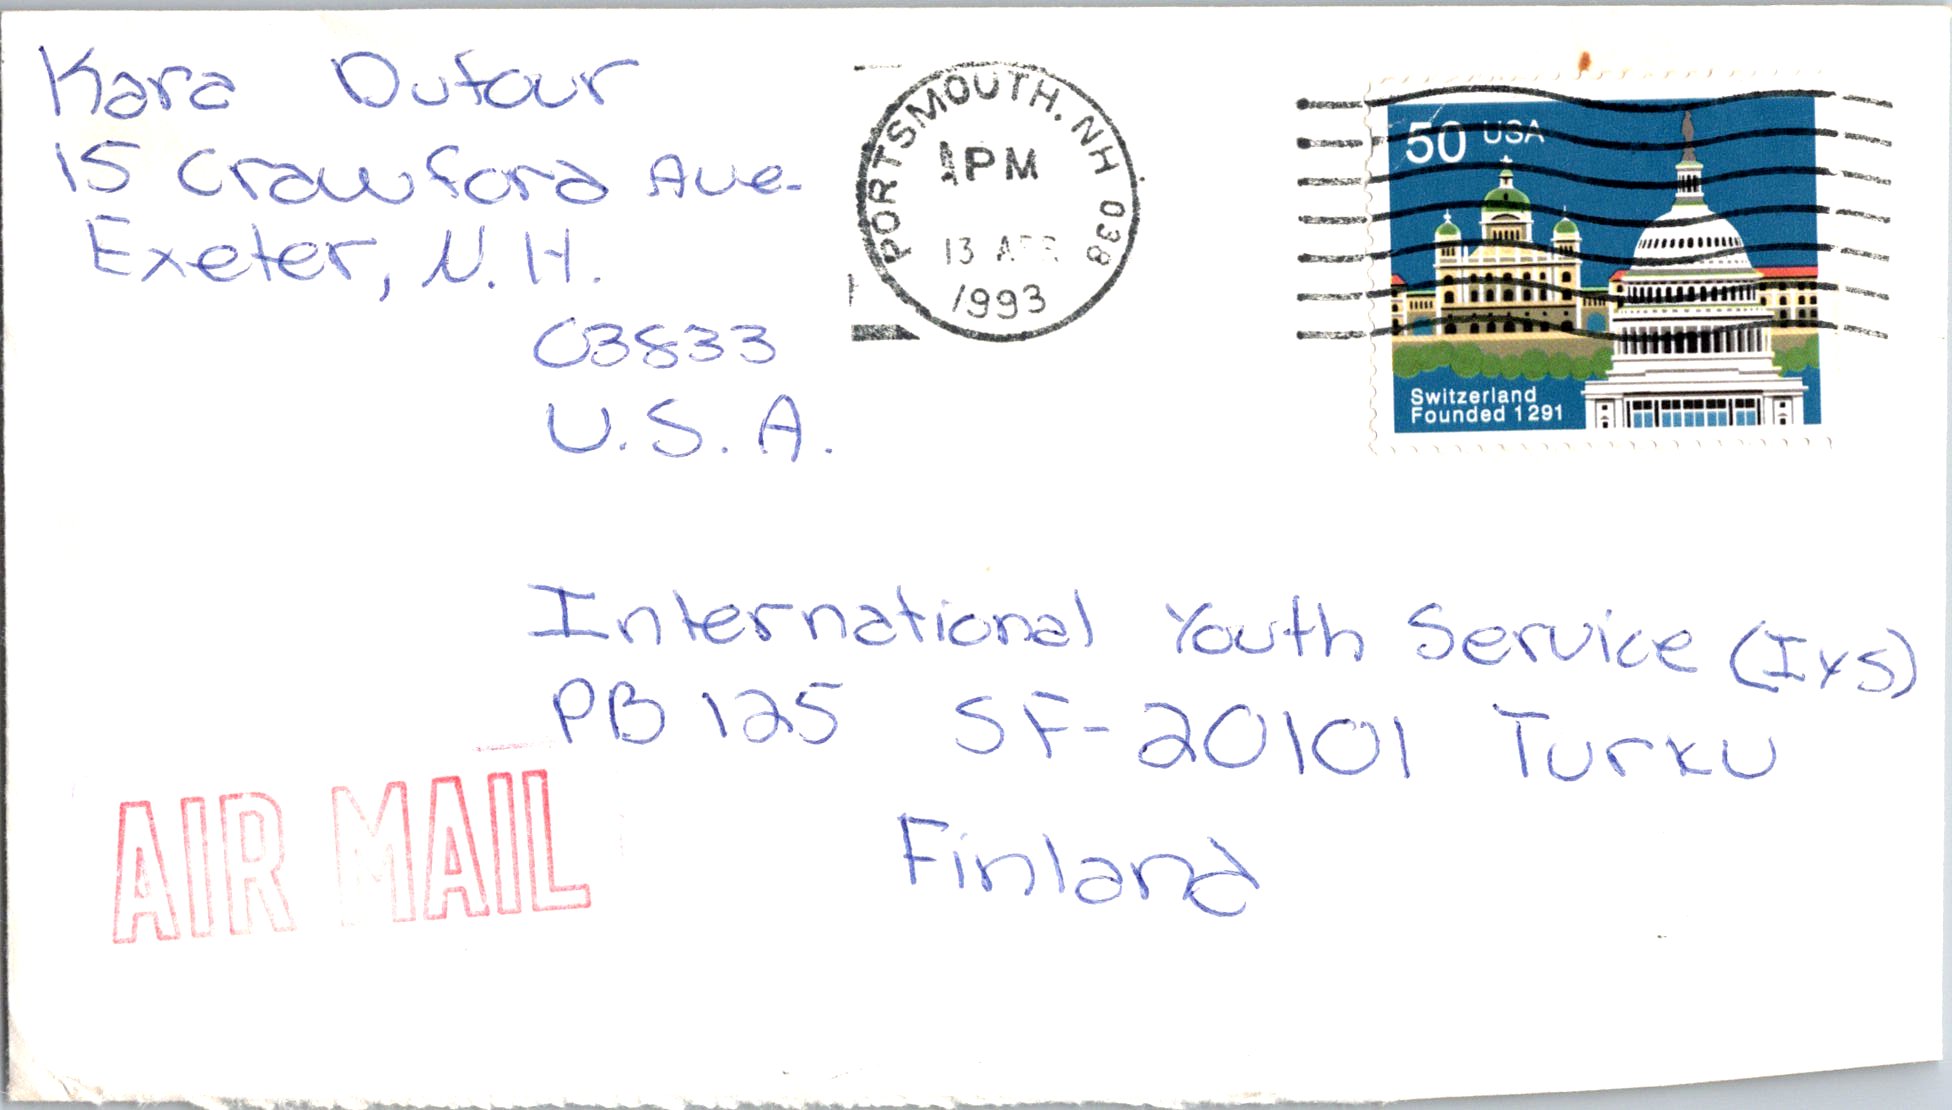 Kara Dufour
15 Crawford Ave.
Exeter, N.H.
03833
U.S.A.
PORTSMOUTH, NH 038
PM
13 APR
1993
50 USA
Switzerland
Founded 1291
International Youth Service (IYS)
PB 125 SF-20101 Turku
Finland
AIR MAIL